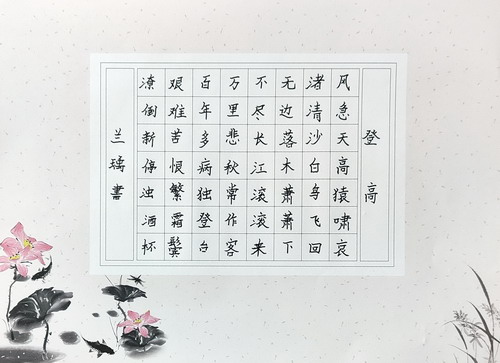 登高
风急天高猿啸哀
渚清沙白鸟飞回
无边落木萧萧下
不尽长江滚滚来
万里悲秋常作客
百年多病独登台
艰难苦恨繁霜鬓
潦倒新停浊酒杯
兰瑶書